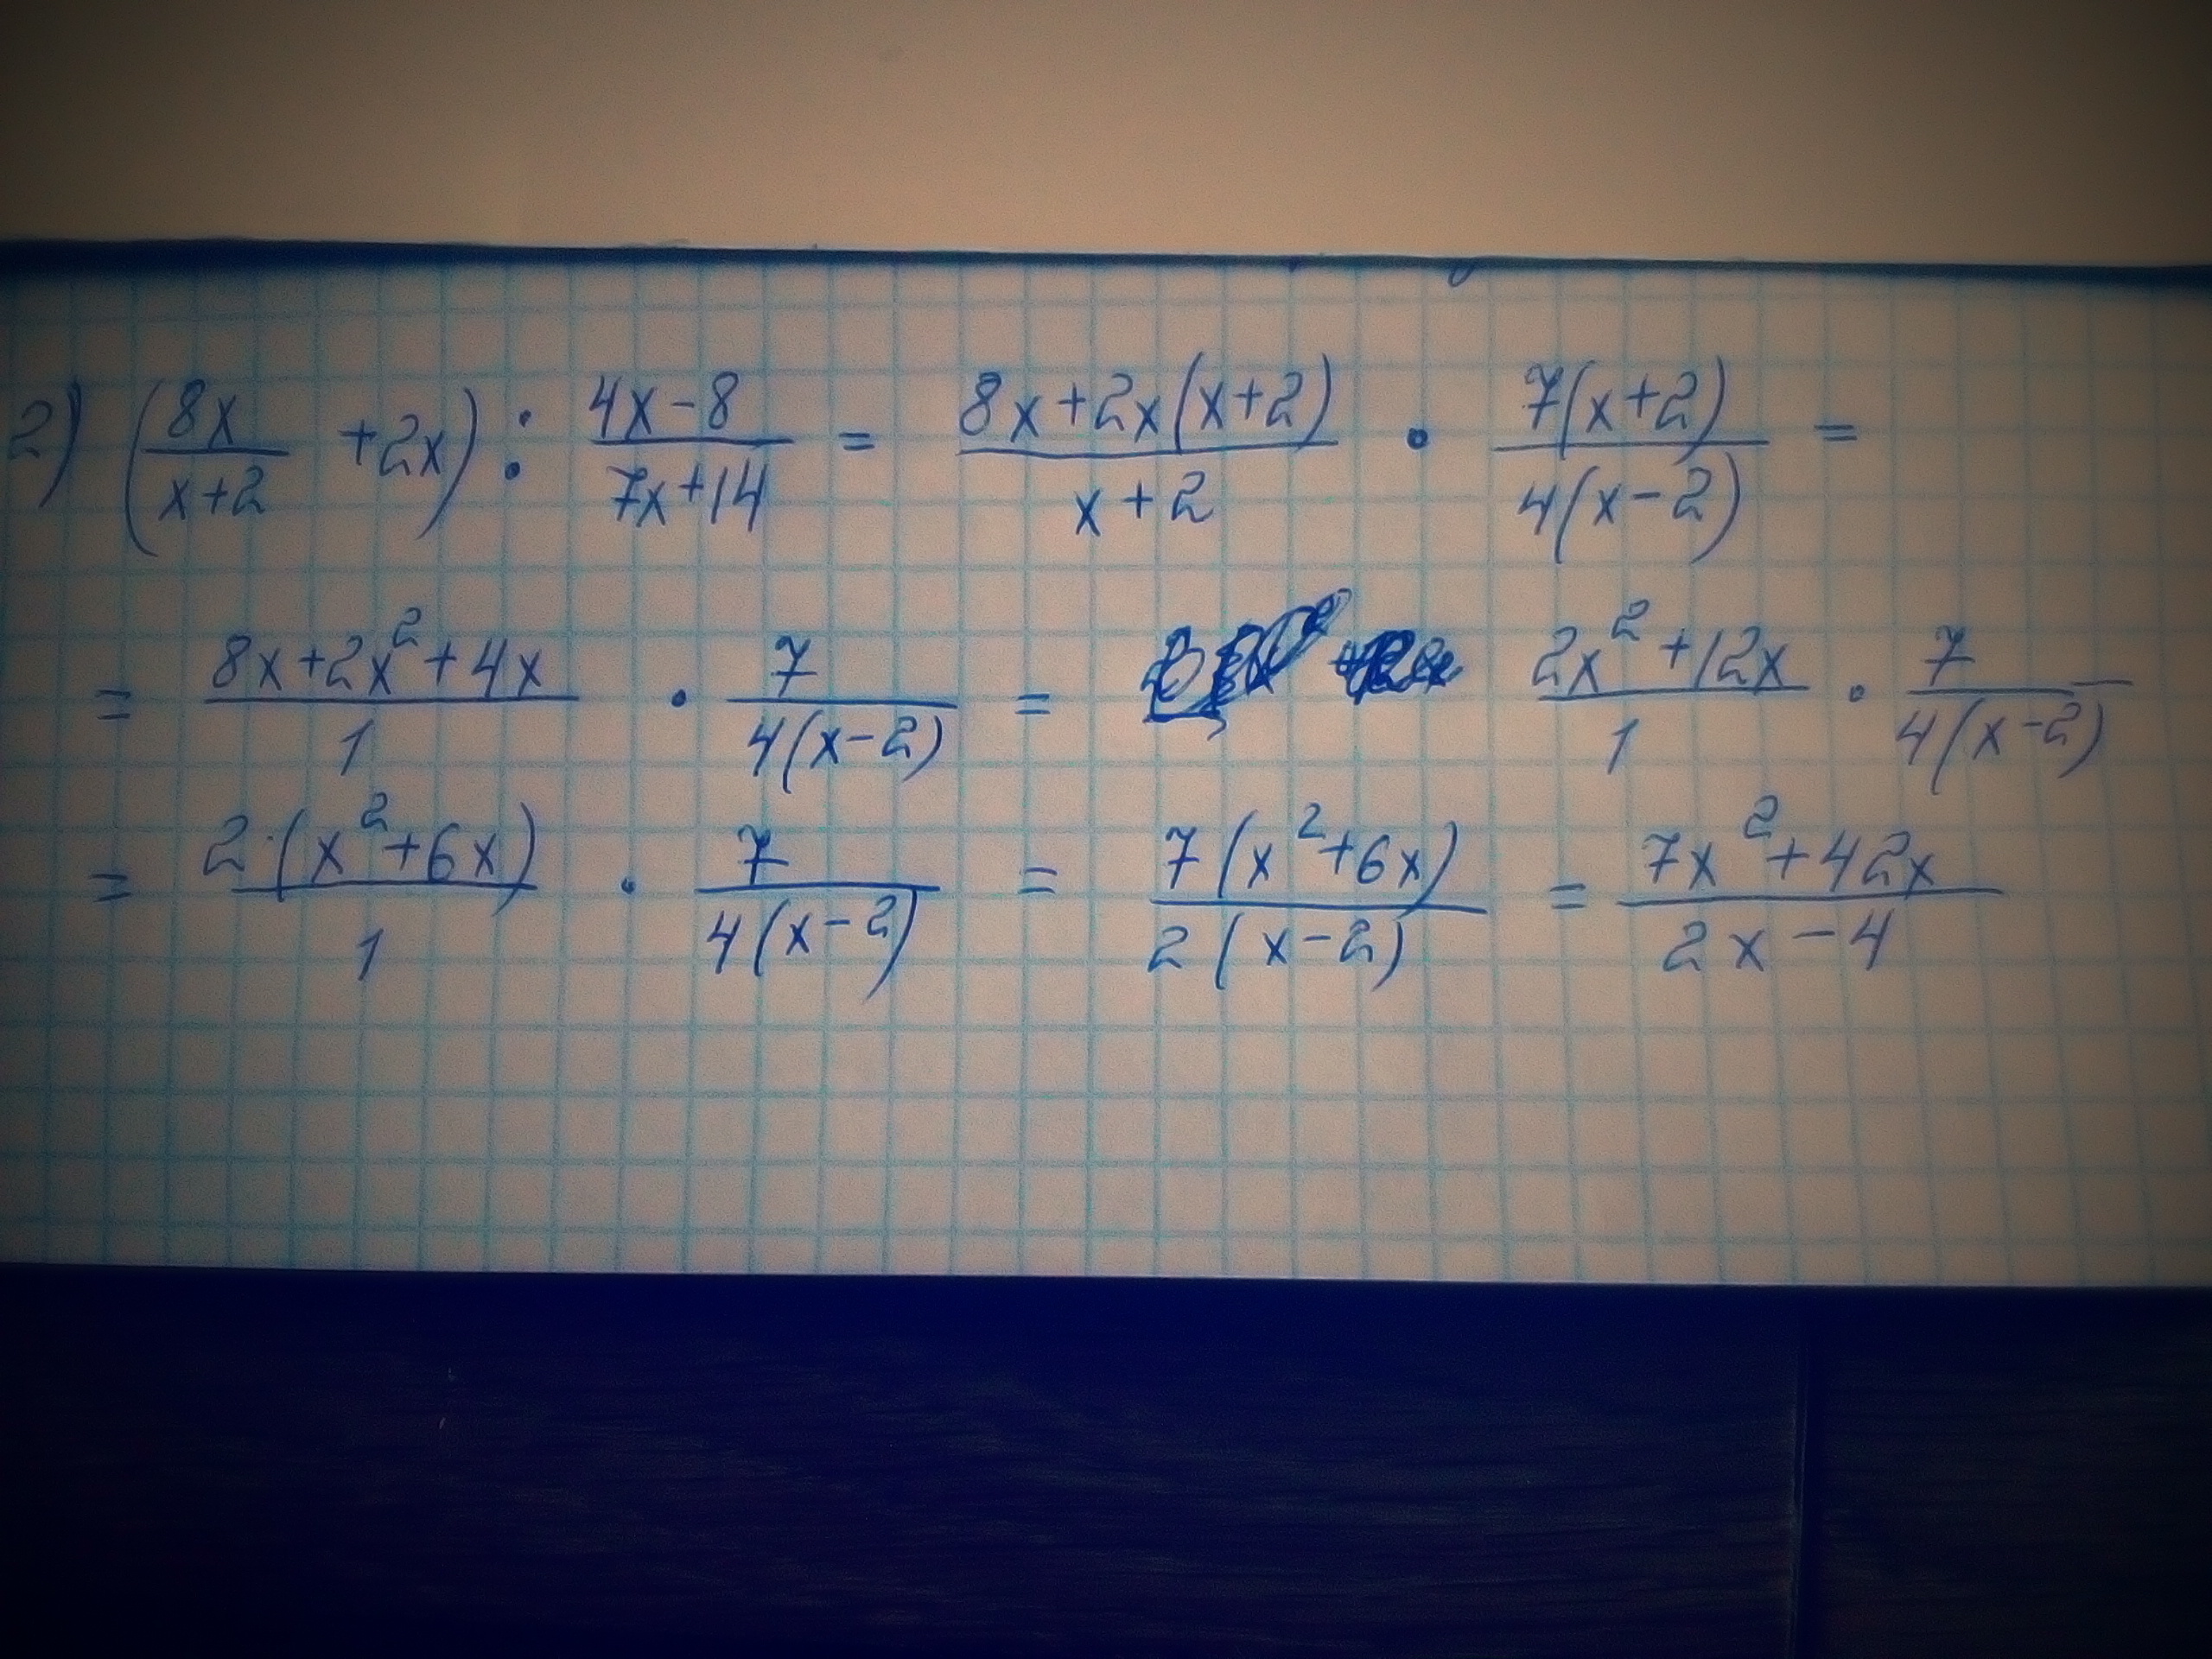 2) (8x/(x+2) + 2x) : (4x-8)/(7x+14) = (8x+2x(x+2))/(x+2) · 7(x+2)/(4(x-2)) =
= (8x+2x²+4x)/1 · 7/(4(x-2)) = (2x²+12x)/1 · 7/(4(x-2))
= 2·(x²+6x)/1 · 7/(4(x-2)) = 7(x²+6x)/(2(x-2)) = (7x²+42x)/(2x-4)